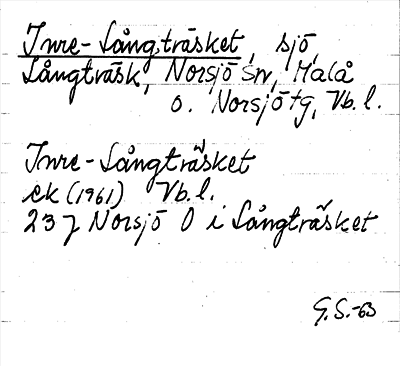 Inre-Långträsket, sjö,
Långträsk, Norsjö sn, Malå
o. Norsjö tg, Vb. l.
Inre-Långträsket
ek (1961) Vb. l.
23 J Norsjö O i Långträsket
G.S.-63